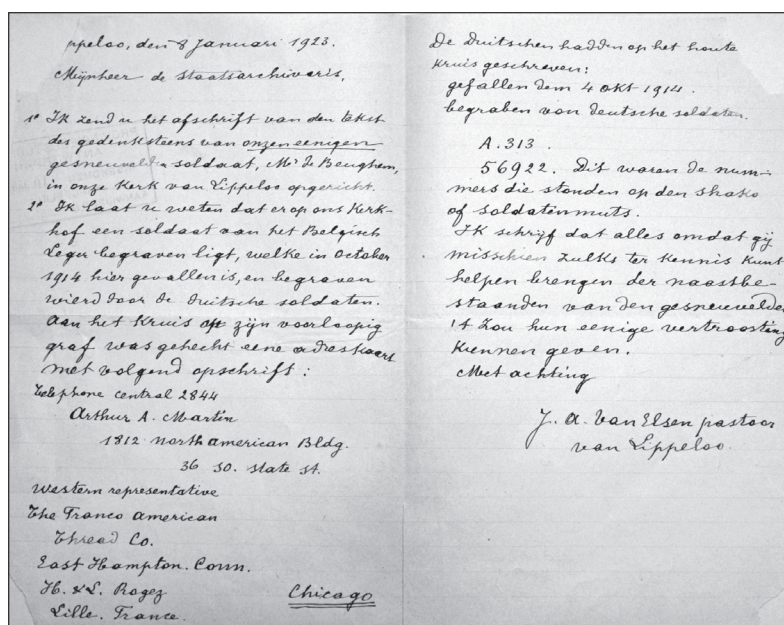 ppeloo, den 8 Januari 1923.
Mijnheer de Staatsarchivaris,
1º Ik zend u het afschrift van den tekst
des gedenksteens van onzen eenigen
gesneuvelden soldaat, Mr de Beughem,
in onze kerk van Lippeloo opgericht.
2º Ik laat u weten dat er op ons Kerk-
hof een soldaat van het Belgisch
Leger begraven ligt, welke in October
1914 hier gevallen is, en begraven
wierd door de duitsche soldaten.
Aan het Kruis op zijn voorloopig
graf was gehecht eene adreskaart
met volgend opschrift :
Telephone central 2844
Arthur A. Martin
1812 north american Bldg.
36 So. State St.
Western representative
The Franco American
Thread Co.
East Hampton. Conn.
H. & L. Rogez
Chicago
Lille. France.
De Duitschen hadden op het houte
kruis geschreven:
gefallen dem 4 okt 1914.
begraben von deutsche soldaten.
A. 313.
56922. Dit waren de num-
mers die stonden op den shako
of soldatenmuts.
Ik schrijf dat alles omdat gij
misschien zulks ter kennis kunt
helpen brengen der naastbe-
staanden van den gesneuvelde
't Zou hun eenige vertroosting
kunnen geven.
Met achting
J. A. Van Elsen pastoor
van Lippeloo.